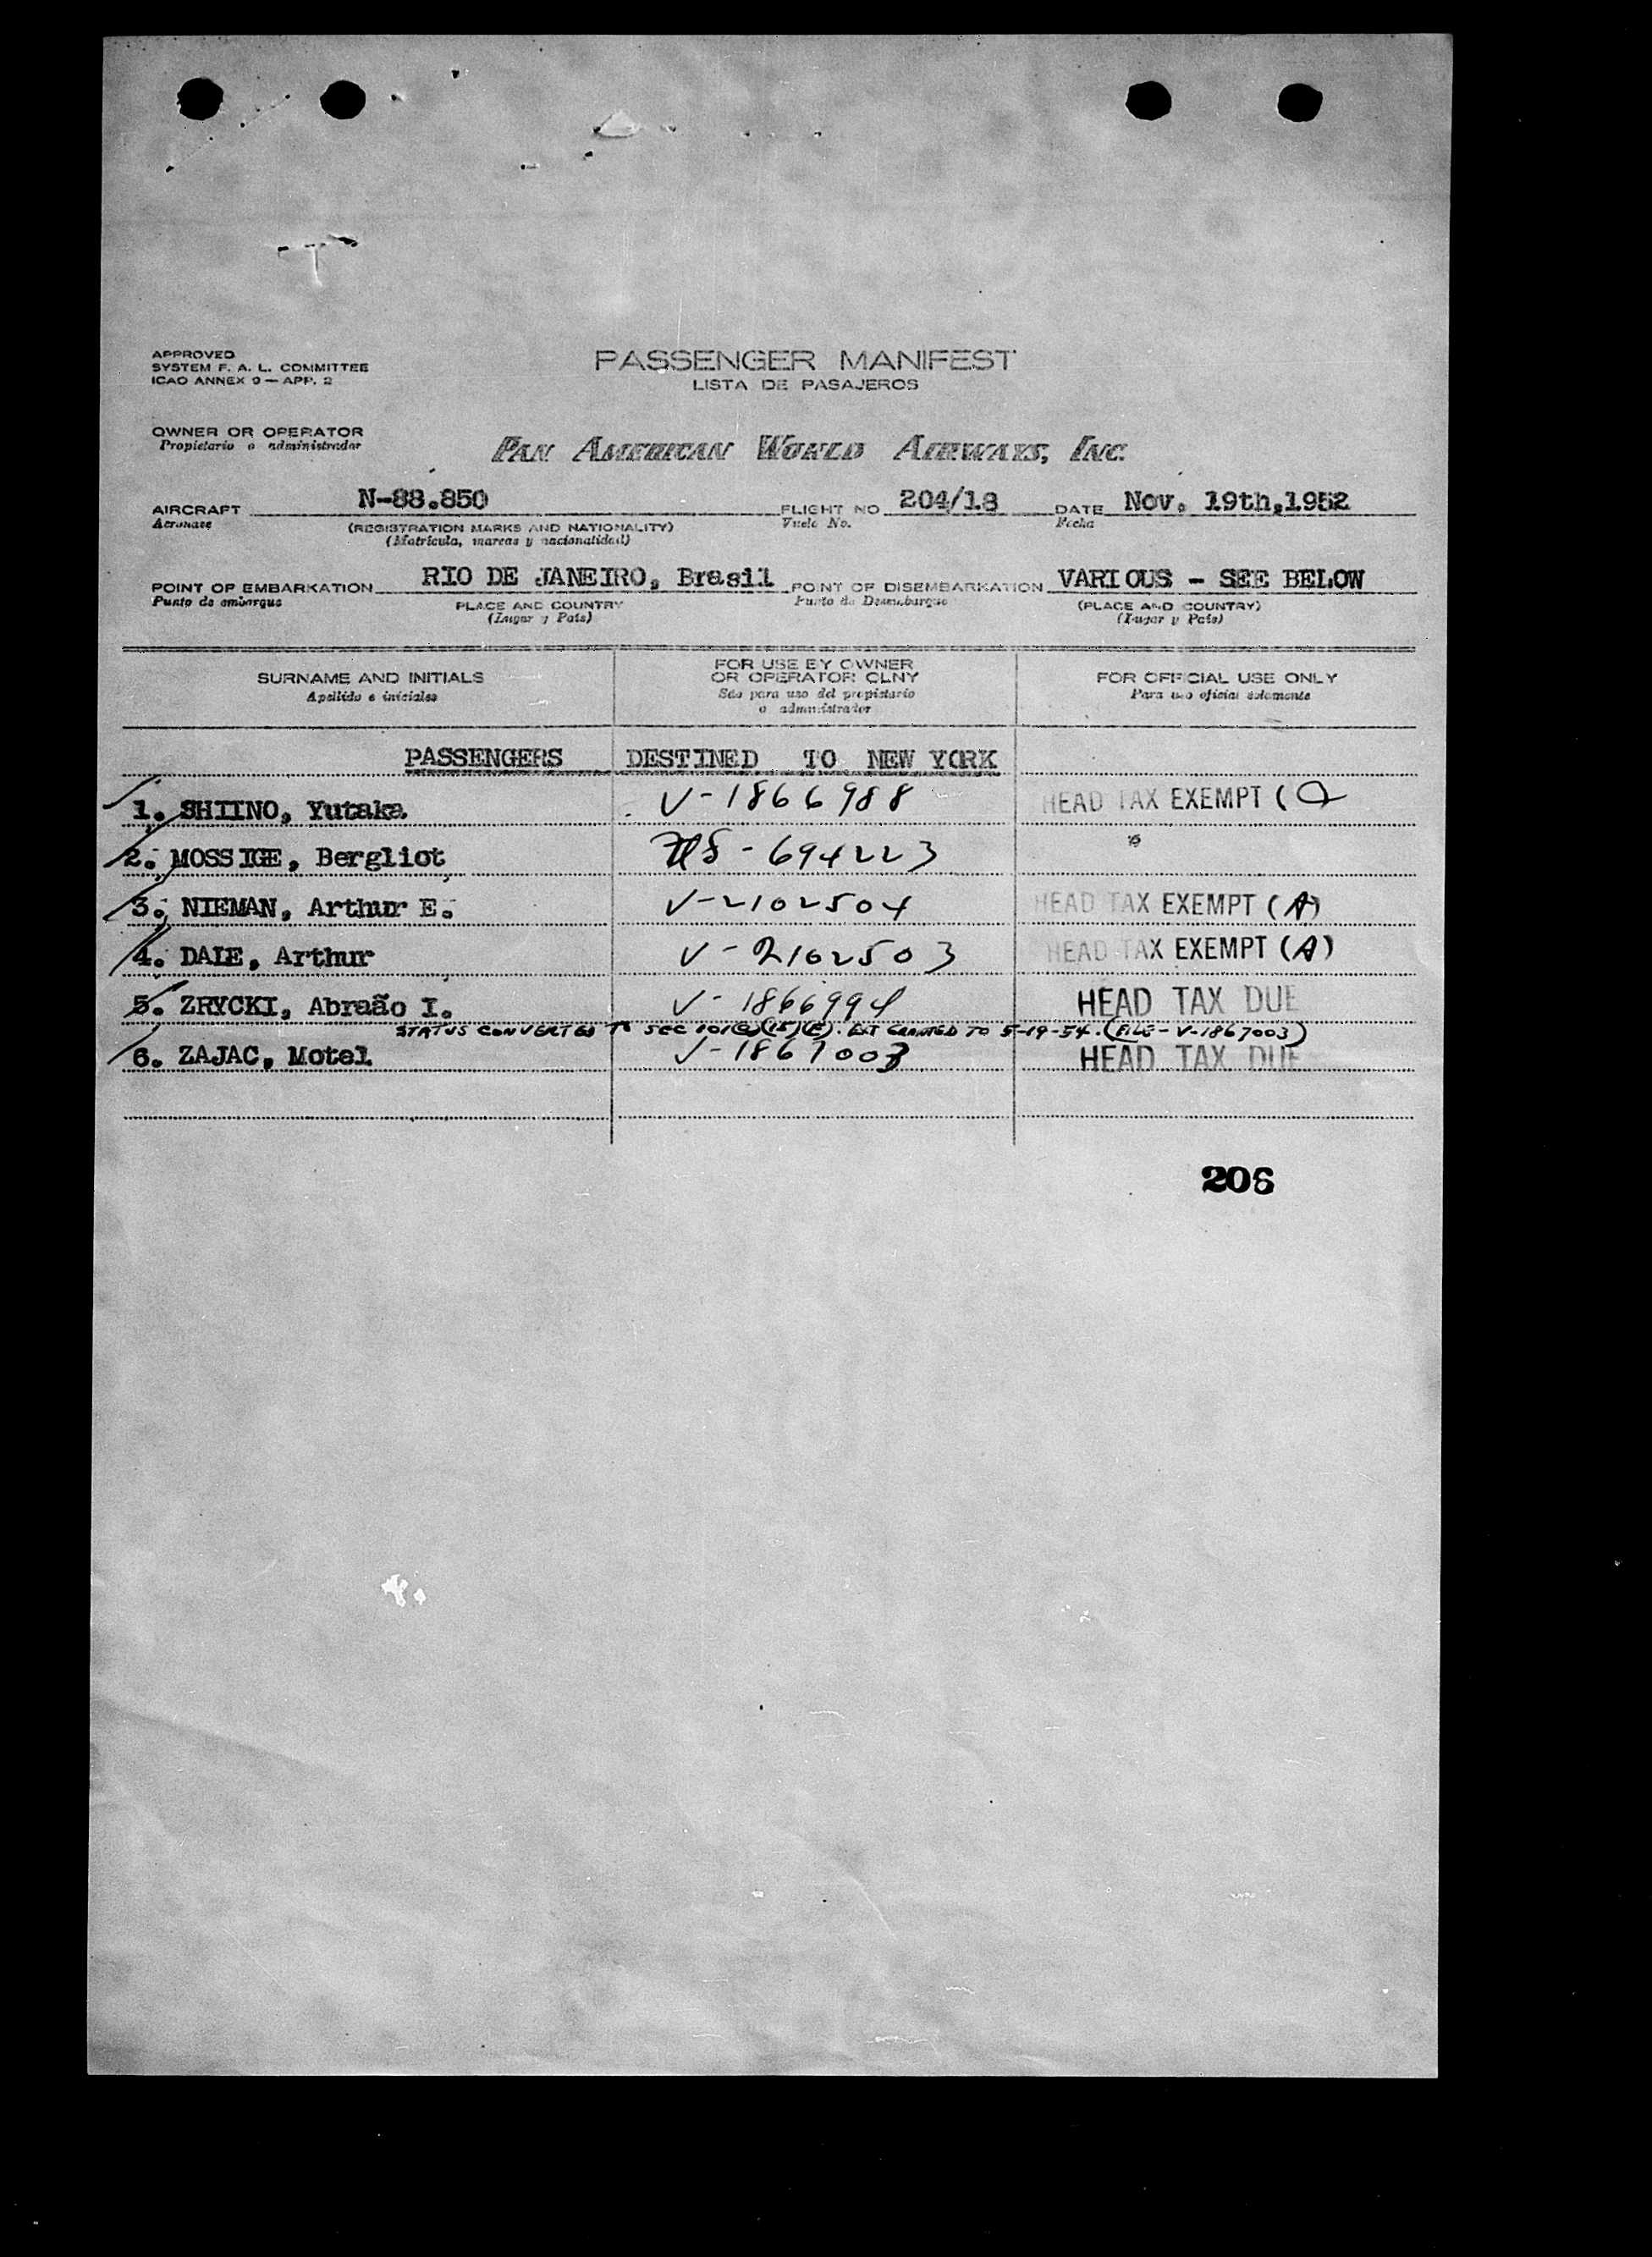 APPROVED
SYSTEM F. A. L. COMMITTEE
ICAO ANNEX 9 — APP. 2
PASSENGER MANIFEST
LISTA DE PASAJEROS
OWNER OR OPERATOR
Propietario o administrador
PAN AMERICAN WORLD AIRWAYS, INC.
AIRCRAFT N-88.850 FLIGHT NO 204/18 DATE Nov. 19th,1952
Aeronave (REGISTRATION MARKS AND NATIONALITY) Vuelo No. Fecha
(Matricula, marcas y nacionalidad)
POINT OF EMBARKATION RIO DE JANEIRO, Brasil POINT OF DISEMBARKATION VARIOUS - SEE BELOW
Punto de embarque PLACE AND COUNTRY Punto de Desembarque (PLACE AND COUNTRY)
(Lugar y Pais) (Lugar y Pais)
SURNAME AND INITIALS FOR USE BY OWNER OR OPERATOR ONLY FOR OFFICIAL USE ONLY
Apellido e iniciales Sólo para uso del propietario o administrador Para uso oficial solamente
PASSENGERS DESTINED TO NEW YORK
1. SHIINO, Yutaka V-1866988 HEAD TAX EXEMPT (
2. MOSSIGE, Bergliot -694223
3. NIEMAN, Arthur E. V-2102504 HEAD TAX EXEMPT (A)
4. DALE, Arthur V-2102503 HEAD TAX EXEMPT (A)
5. ZRYCKI, Abraão I. V-1866994 HEAD TAX DUE
STATUS CONVERTED TO SEC 101(a)(15)(E). EXT GRANTED TO 5-19-54. (FILE-V-1867003)
6. ZAJAC, Motel V-1867003 HEAD TAX DUE
206